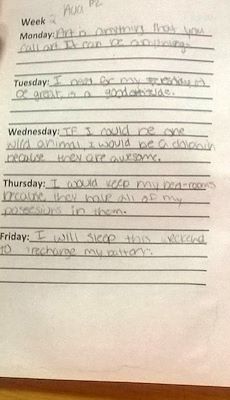 Ava P2
Week
Monday: Art is anything that you
call art It can be anything.
Tuesday: I need for my Tuesday to
be great, is a good attitude.
Wednesday: If I could be one
wild animal, I would be a dolphin
because they are awesome.
Thursday: I would keep my bed-rooms
because they have all of my
possesions in them.
Friday: I will sleep this weekend
to "recharge my battery".